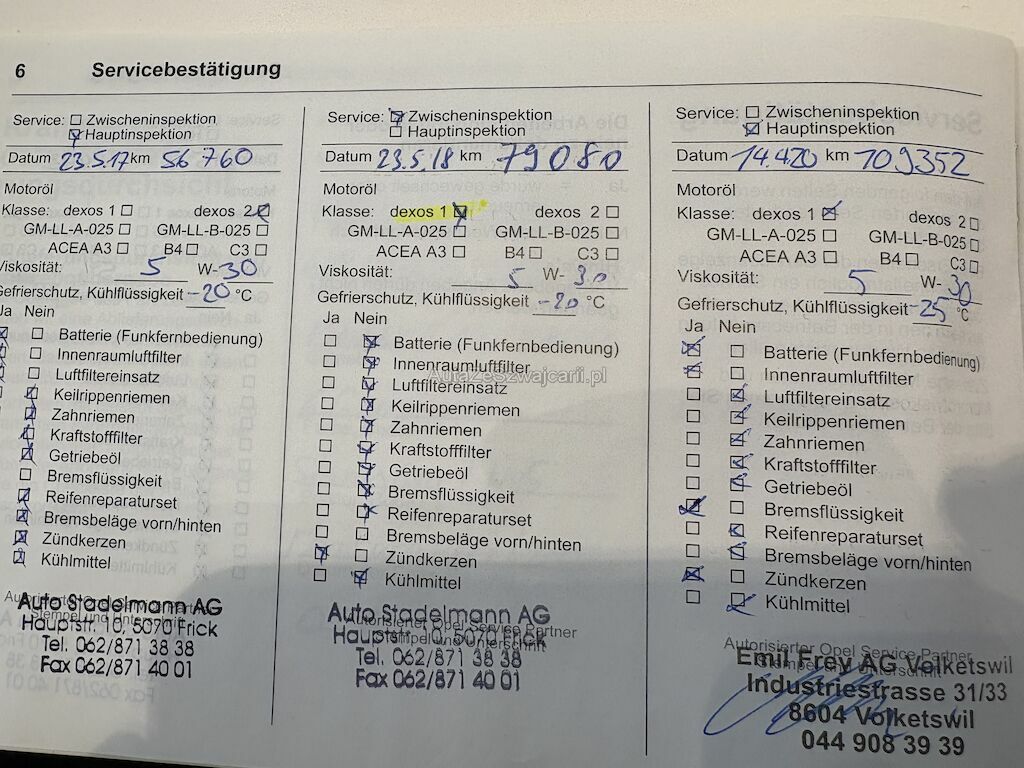 6 Servicebestätigung
Service: Zwischeninspektion
Hauptinspektion
Datum 23.5.17 km 56 760
Motoröl
Klasse: dexos 1 dexos 2
GM-LL-A-025 GM-LL-B-025
ACEA A3 B4 C3
Viskosität: 5 W-30
Gefrierschutz, Kühlflüssigkeit -20 °C
Ja Nein
Batterie (Funkfernbedienung)
Innenraumluftfilter
Luftfiltereinsatz
Keilrippenriemen
Zahnriemen
Kraftstofffilter
Getriebeöl
Bremsflüssigkeit
Reifenreparaturset
Bremsbeläge vorn/hinten
Zündkerzen
Kühlmittel
Auto Stadelmann AG
Hauptstr. 10, 5070 Frick
Tel. 062/871 38 38
Fax 062/871 40 01
Service: Zwischeninspektion
Hauptinspektion
Datum 23.5.18 km 79080
Motoröl
Klasse: dexos 1 dexos 2
GM-LL-A-025 GM-LL-B-025
ACEA A3 B4 C3
Viskosität: 5 W-30
Gefrierschutz, Kühlflüssigkeit -20 °C
Ja Nein
Batterie (Funkfernbedienung)
Innenraumluftfilter
AutaZeSzwajcarii.pl
Luftfiltereinsatz
Keilrippenriemen
Zahnriemen
Kraftstofffilter
Getriebeöl
Bremsflüssigkeit
Reifenreparaturset
Bremsbeläge vorn/hinten
Zündkerzen
Kühlmittel
Autorisierter Opel Service Partner
Stempel und Unterschrift
Auto Stadelmann AG
Hauptstr. 10, 5070 Frick
Tel. 062/871 38 38
Fax 062/871 40 01
Service: Zwischeninspektion
Hauptinspektion
Datum 14.4.20 km 109352
Motoröl
Klasse: dexos 1 dexos 2
GM-LL-A-025 GM-LL-B-025
ACEA A3 B4 C3
Viskosität: 5 W-30
Gefrierschutz, Kühlflüssigkeit -25 °C
Ja Nein
Batterie (Funkfernbedienung)
Innenraumluftfilter
Luftfiltereinsatz
Keilrippenriemen
Zahnriemen
Kraftstofffilter
Getriebeöl
Bremsflüssigkeit
Reifenreparaturset
Bremsbeläge vorn/hinten
Zündkerzen
Kühlmittel
Autorisierter Opel Service Partner
Emil Frey AG Volketswil
Industriestrasse 31/33
8604 Volketswil
044 908 39 39